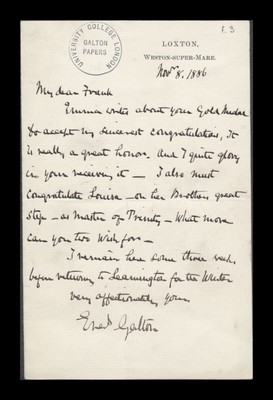 UNIVERSITY COLLEGE LONDON
GALTON
PAPERS
LOXTON,
WESTON-SUPER-MARE.
Novr 8. 1886
My dear Frank
Emma writes about your Gold Medal
Do accept my sincerest congratulations, It
is really a great honor. And I quite glory
in your receiving it — I also must
congratulate Louisa — on her Brothers great
step — as Master of Trinity — What more
can you two wish for —
I remain here some three weeks
before returning to Leamington for the Winter
very affectionately yours
Galton